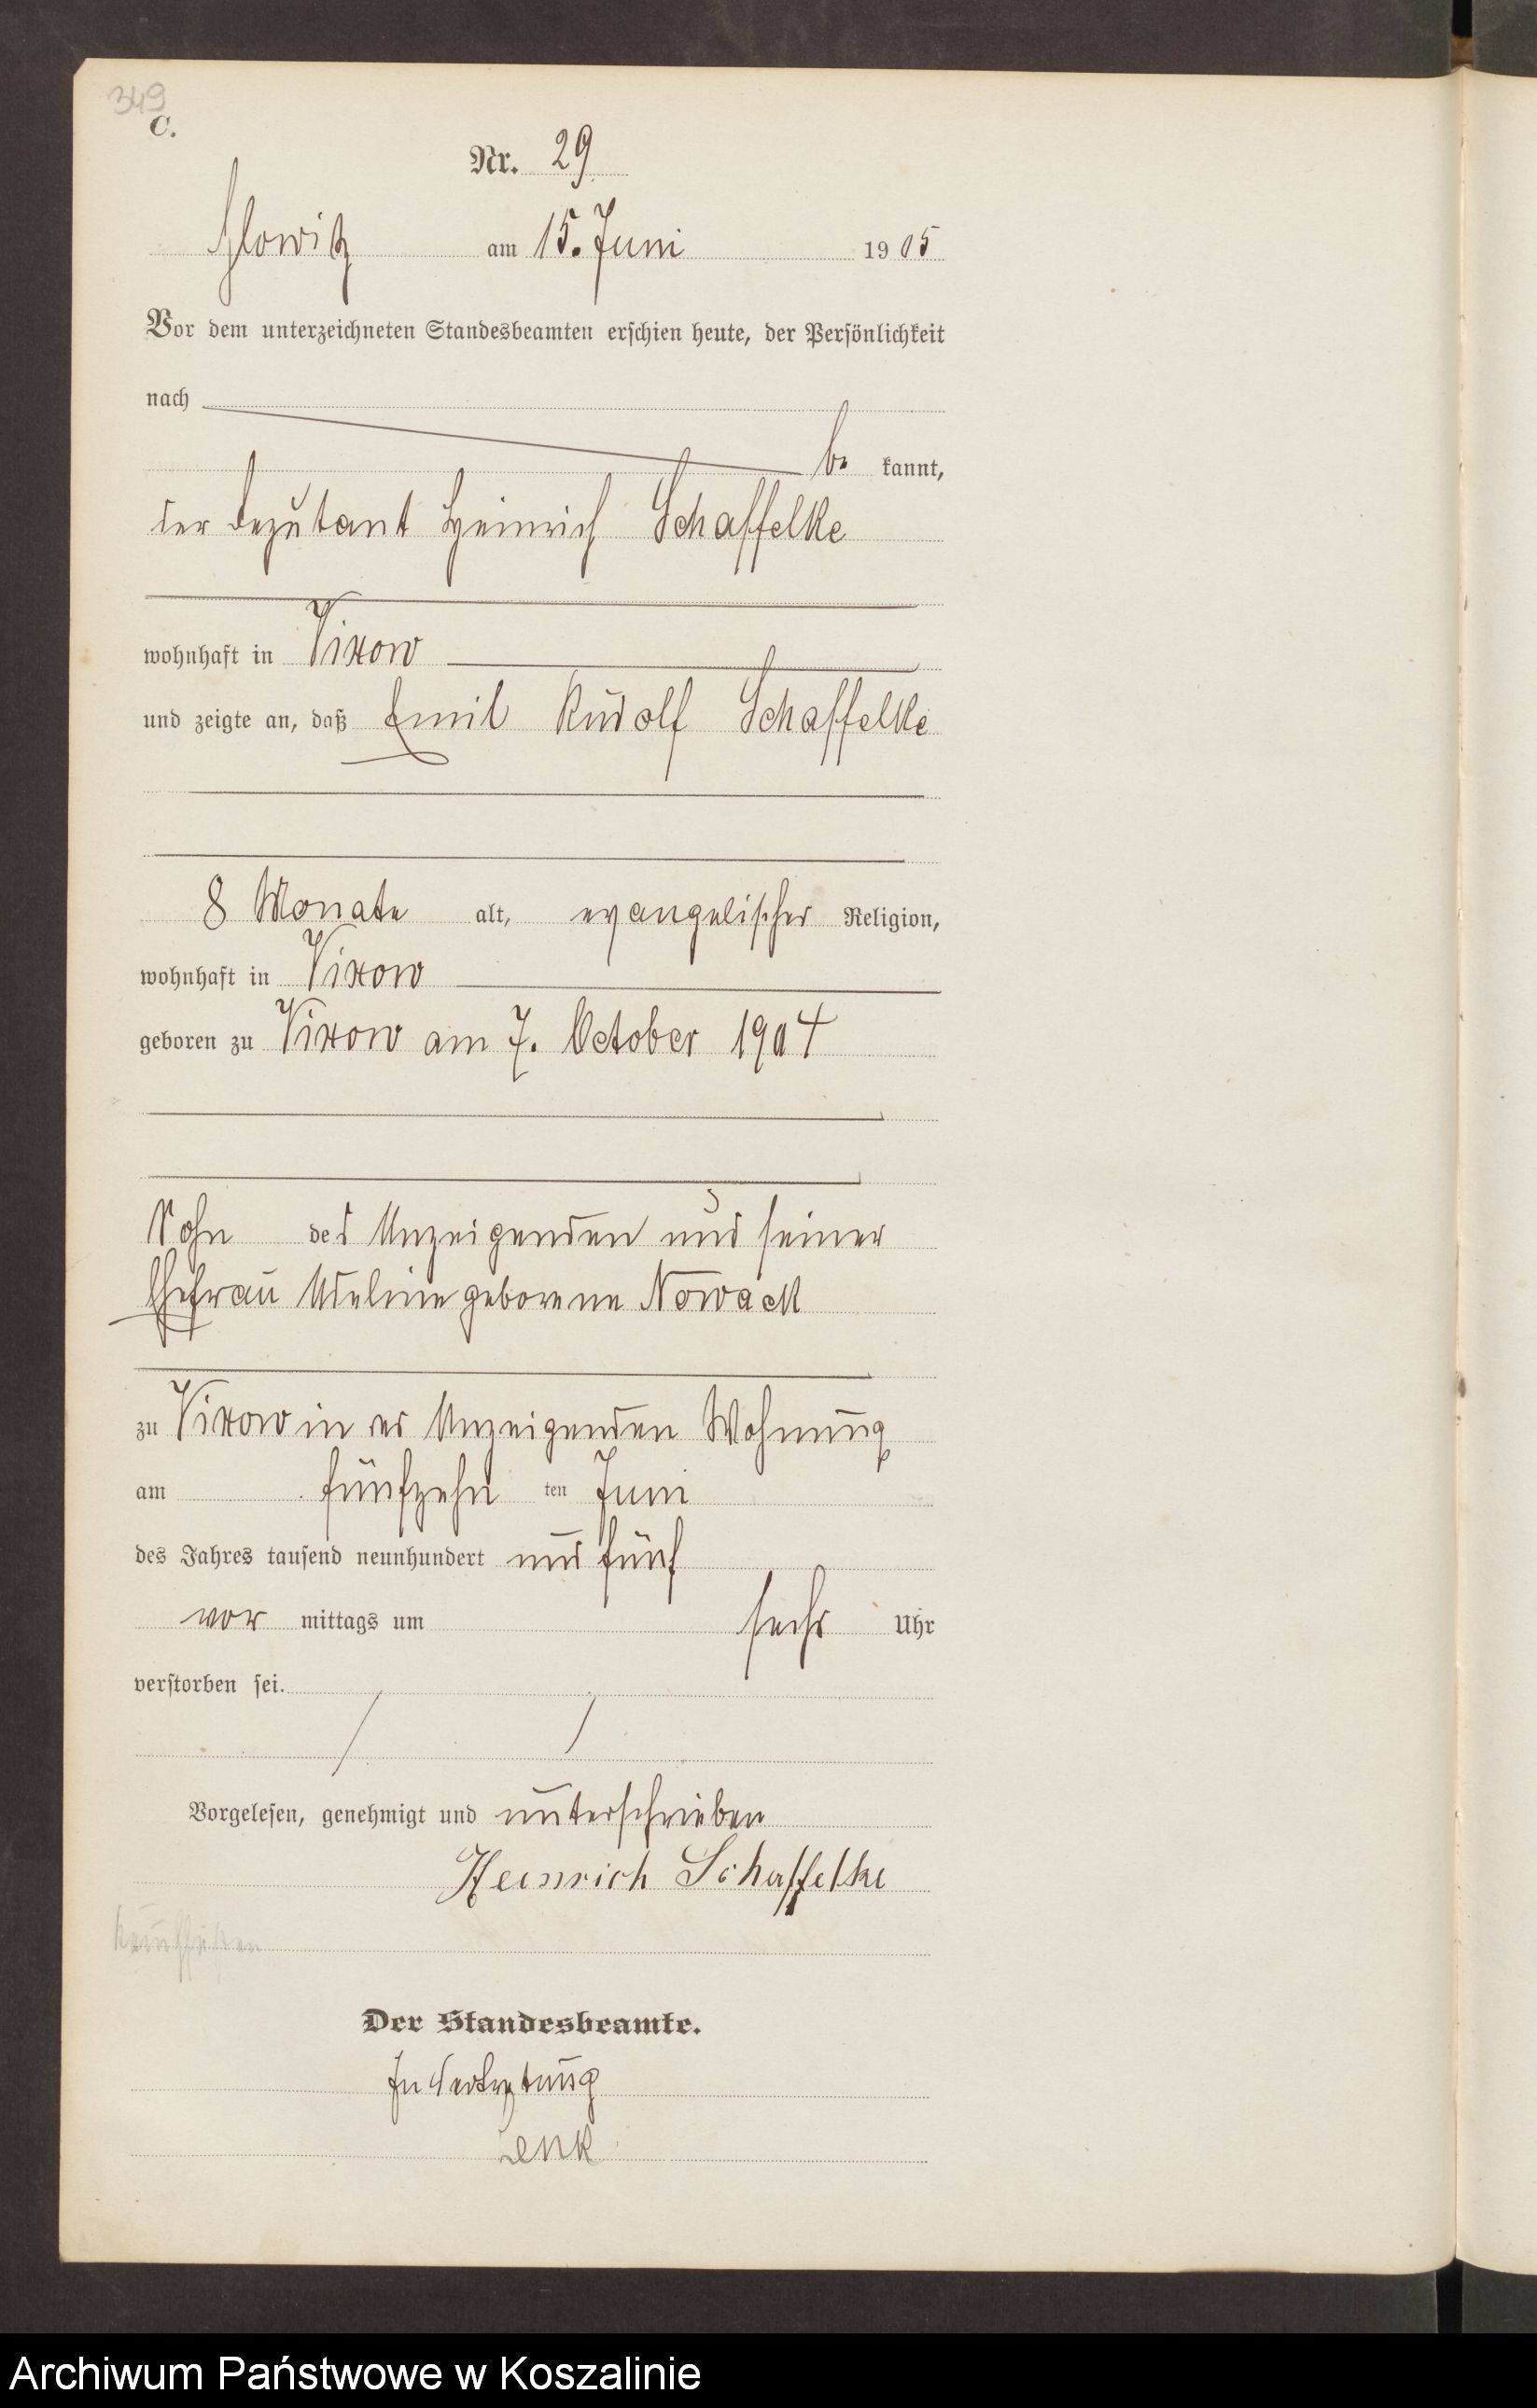 349
C.
Nr. 29
Glowitz am 15. Juni 1905
Vor dem unterzeichneten Standesbeamten erschien heute, der Persönlichkeit
nach
be kannt,
der Deputant Heinrich Schaffelke
wohnhaft in Vixow
und zeigte an, daß Emil Rudolf Schaffelke
8 Monate alt, evangelischer Religion,
wohnhaft in Vixow
geboren zu Vixow am 7. October 1904
Sohn des Anzeigenden und seiner
Ehefrau Adeline geborene Nowack
zu Vixow in des Anzeigenden Wohnung
am fünfzehn ten Juni
des Jahres tausend neunhundert und fünf
vor mittags um sechs Uhr
verstorben sei.
Vorgelesen, genehmigt und unterschrieben
Heinrich Schaffelke
Der Standesbeamte.
In Vertretung
Lenk
Archiwum Państwowe w Koszalinie